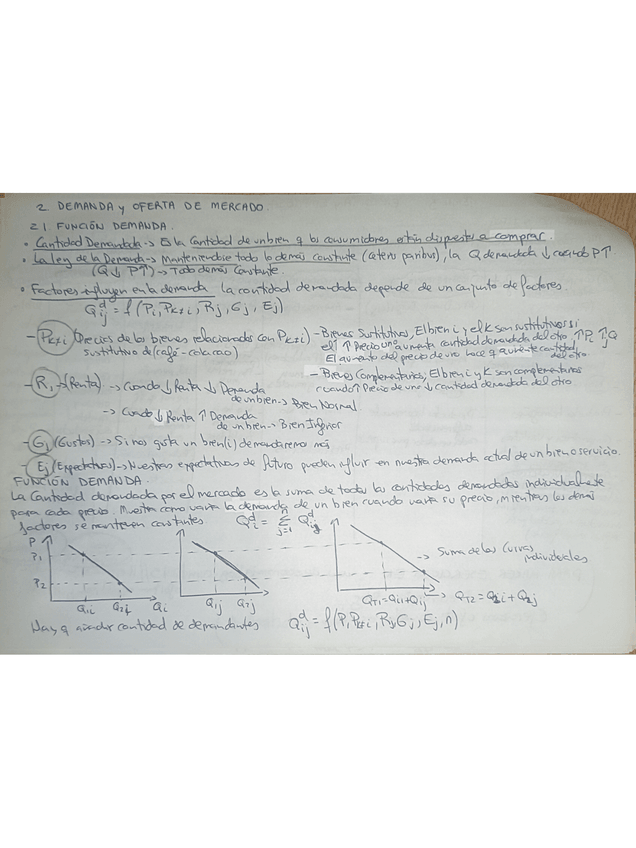 2 DEMANDA y OFERTA DE MERCADO.
2.1 FUNCIÓN DEMANDA.
• Cantidad Demandada -> Es la cantidad de un bien q los consumidores están dispuestos a comprar.
• La ley de la Demanda -> Manteniendose todo lo demás constante (cetero paribus), la Q demandada ↓ cuando P↑
(Q↓ P↑) -> Todo demás constante.
• Factores influyen en la demanda la cantidad demandada depende de un conjunto de factores.
Q^d_ij = f (Pi, Pk≠i, Rj, Gj, Ej)
- Pk≠i (Precios de los bienes relacionados con Pk≠i)
sustitutivo de (café - colacao)
- Bienes Sustitutivos, El bien i y el K son sustitutivos si
el ↑ Precio uno aumenta cantidad demandada del otro. ↑Pi ↑Q
El aumento del precio de uno hace q aumente cantidad
del otro.
- Bienes Complementarios, El bien i y K son complementarios
cuando ↑ Precio de uno ↓ cantidad demandada del otro
- Rj -> (Renta) -> Cuando ↓ Renta ↓ Demanda
de un bien -> Bien Normal
-> Cuando ↓ Renta ↑ Demanda
de un bien -> Bien Inferior
- Gj (Gustos) -> Si nos gusta un bien (i) demandaremos más
- Ej (Expectativas) -> Nuestras expectativas de futuro pueden influir en nuestra demanda actual de un bien o servicio.
FUNCIÓN DEMANDA.
La Cantidad demandada por el mercado es la suma de todas las cantidades demandadas individualmente
para cada precio. Muestra como varía la demanda de un bien cuando varía su precio, mientras los demás
factores se mantienen constantes Q^d_i = Σ j=1 Q^d_ij
P
P1
P2
Q1i Q2i Qi
Q1j Q2j
-> Suma de las curvas
individuales
QT1 = Q1i + Q1j -> QT2 = Q2i + Q2j
Hay q añadir cantidad de demandantes Q^d_ij = f (Pi, Pk≠i, Rj, Gj, Ej, n)